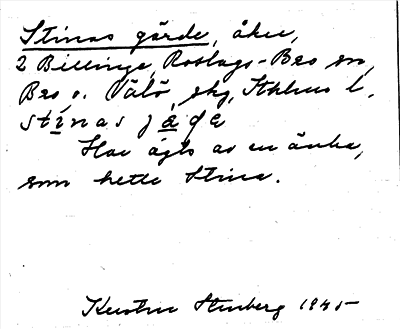 Stinas gärde, åker,
2 Billinge, Roslags-Bro sn,
Bro o. Vätö skg, Sthlms l.
stìnas jäɖe
Har ägts av en änka,
som hette Stina.
Kerstin Stenberg 1945